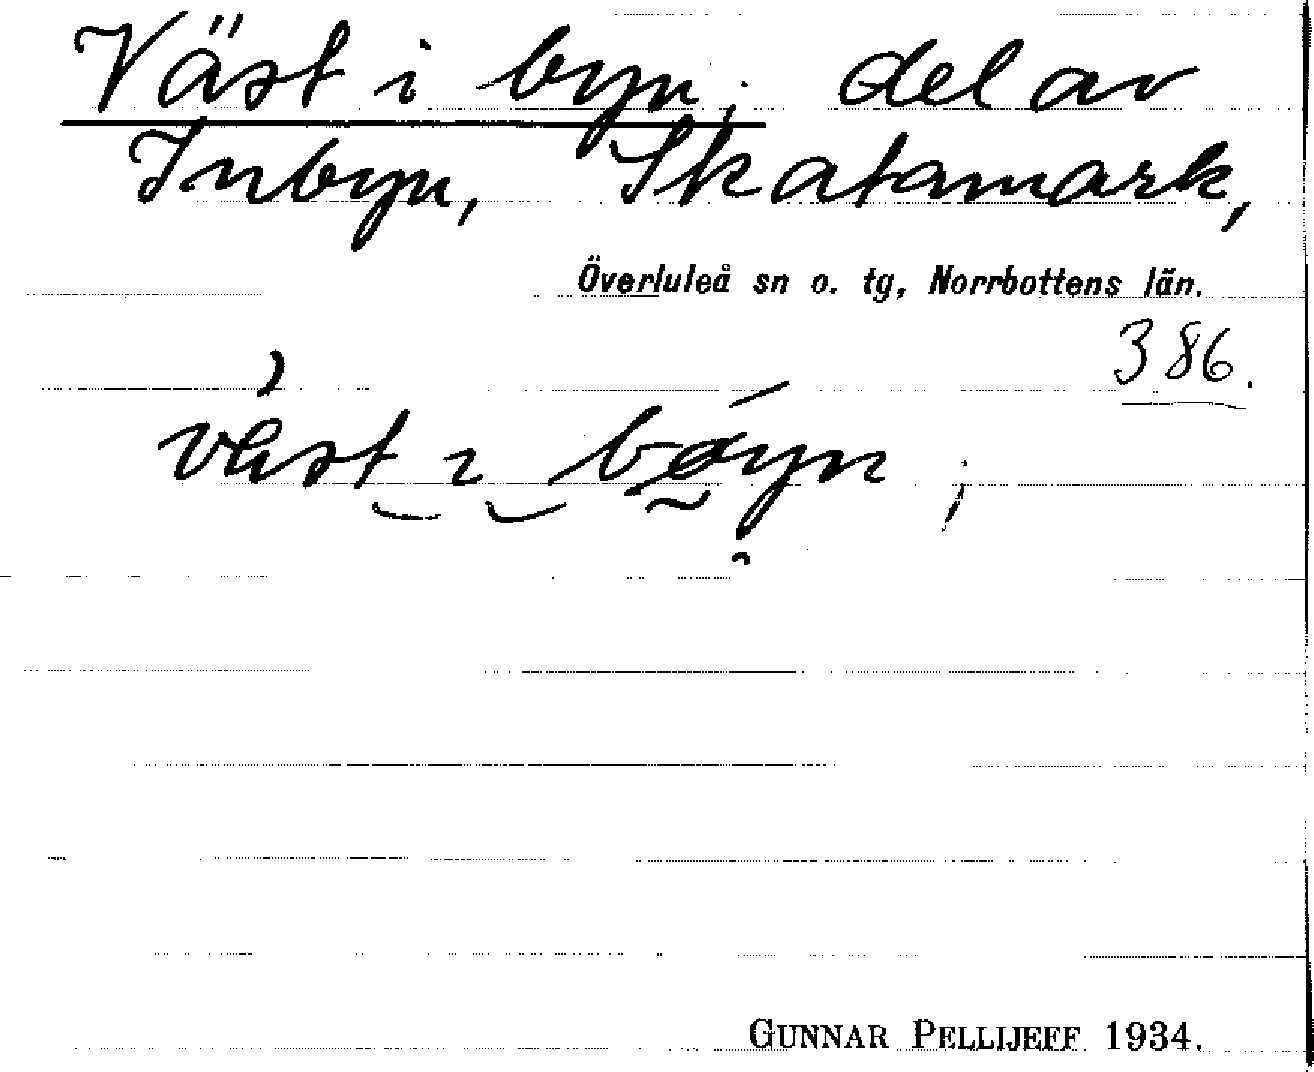 Väst i byn, del av
Inbyn, Skatamark,
Överluleå sn o. tg, Norrbottens län.
386.
väst i bøyn ;
GUNNAR PELLIJEFF 1934.